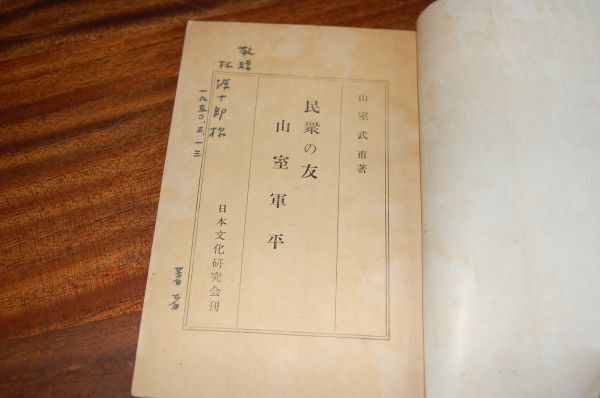 山室武甫著
民衆の友
山室軍平
日本文化研究会刊
敬贈
林源十郎様
一九五〇、三、一三
著者